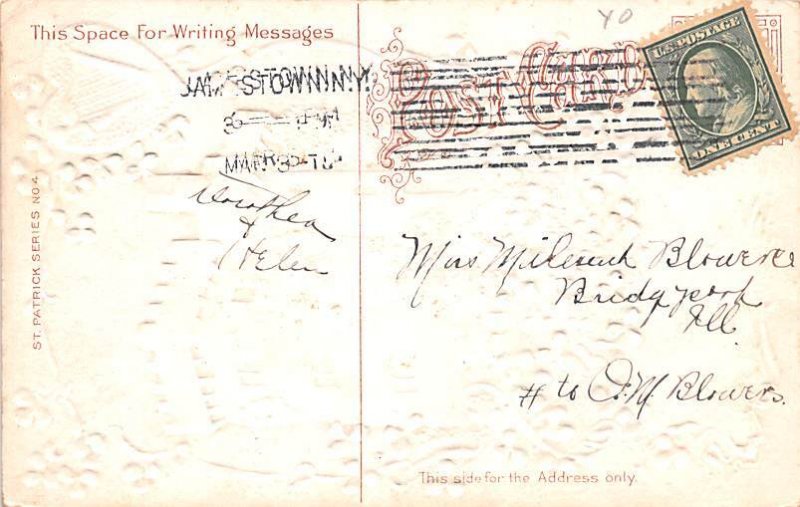 This Space For Writing Messages
POST CARD
U.S. POSTAGE
ONE CENT
JAMESTOWN N.Y.
MAR 3
Dorothea
&
Helen
Miss Blowers
Bridgeport
Ill
# to O.M. Blowers.
ST. PATRICK SERIES NO. 4
This side for the Address only.